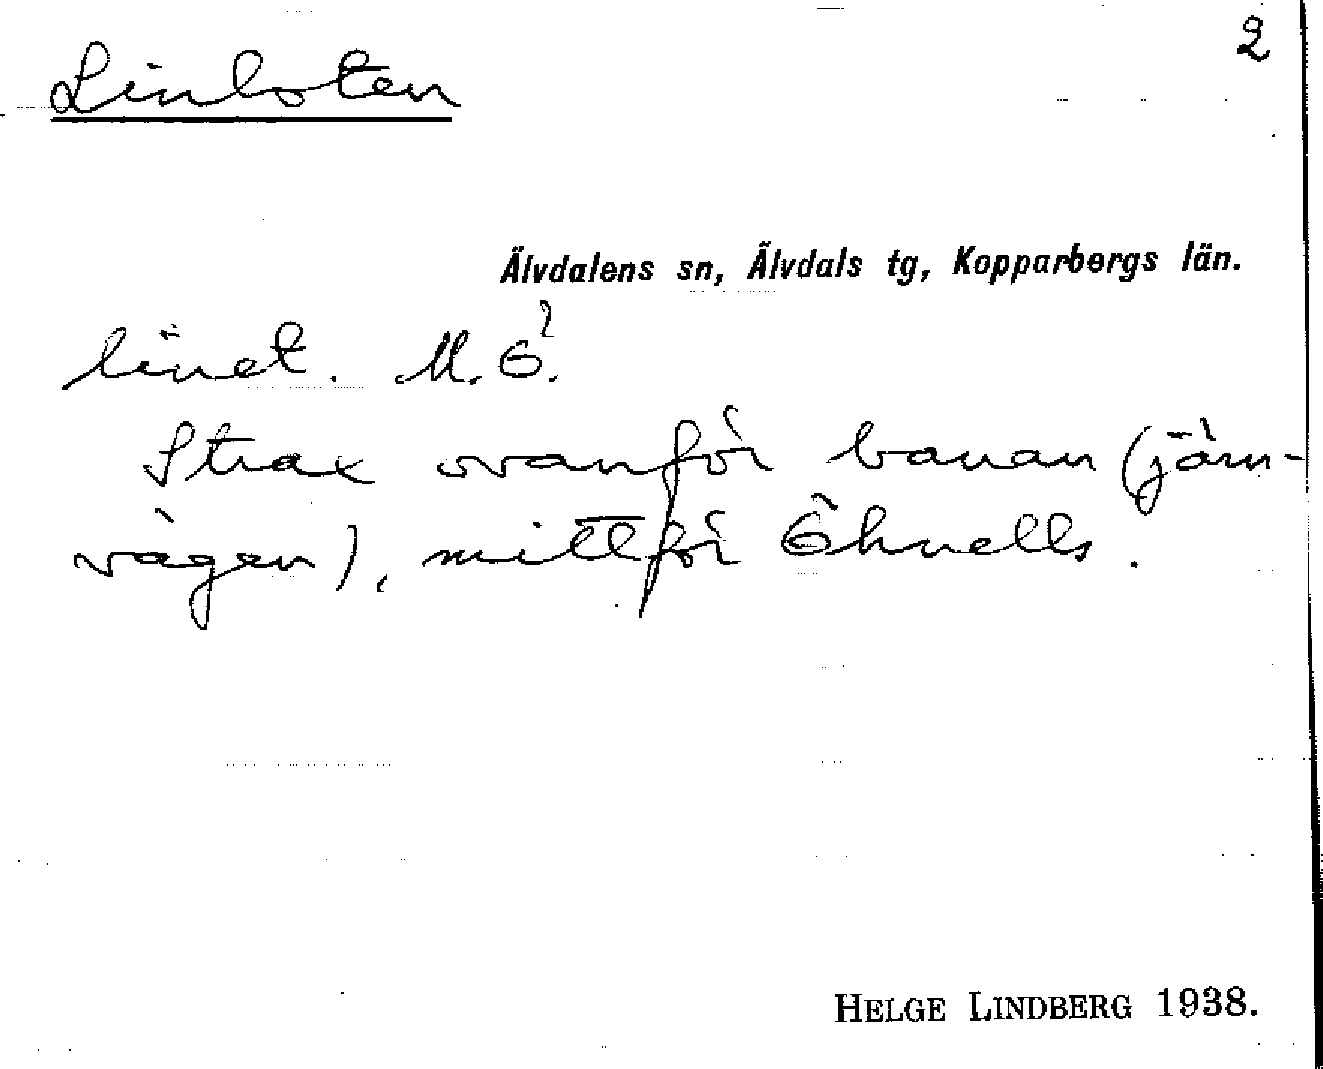 2
Linloten
Älvdalens sn, Älvdals tg, Kopparbergs län.
linet. M. Ö.
Strax ovanför banan (järn-
vägen), mittför Öhnells.
HELGE LINDBERG 1938.